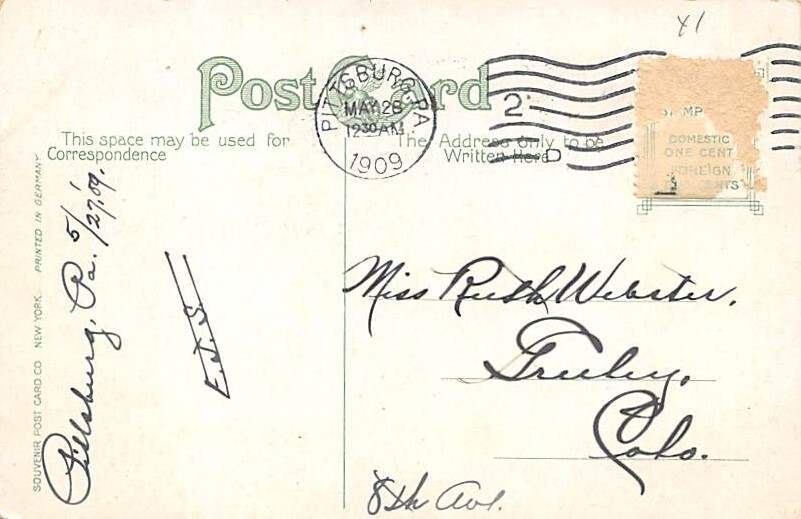 41
Post Card
PITTSBURG, PA
MAY 28
12 30 AM
1909
2
D
This space may be used for
Correspondence
The Address only to be
Written Here
DOMESTIC
ONE CENT
FOREIGN
CENTS
SOUVENIR POST CARD CO NEW YORK. PRINTED IN GERMANY.
Pittsburg, Pa. 5/27/'09.
E.J.S.
Miss Ruth Webster.
Greeley,
Colo.
8th Ave.